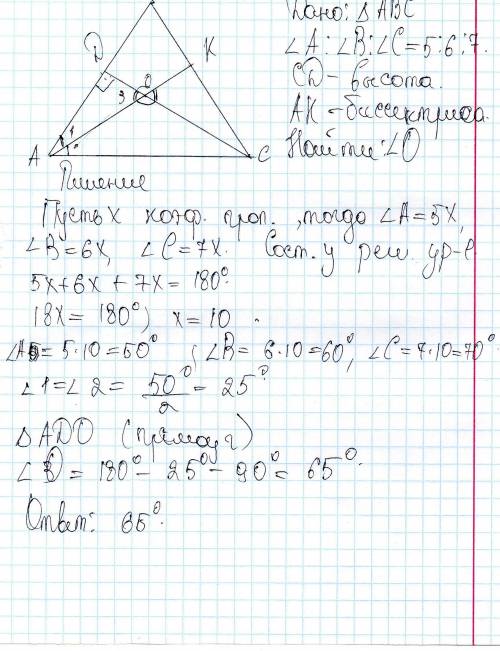 Дано: △ABC
∠A:∠B:∠C=5:6:7.
CD- высота.
AK-биссектриса.
Найти: ∠O
D
K
O
3
1
2
A
C
Ришение
Пусть x коэф. проп., тогда ∠A=5x,
∠B=6x, ∠C=7x. Сост. и реш ур-е
5x+6x+7x=180°
18x=180°, x=10.
∠A=5·10=50°, ∠B=6·10=60°, ∠C=7·10=70°
∠1=∠2=50°/2=25°
△ADO (прямоуг)
∠O=180°-25°-90°=65°.
Ответ: 65°.